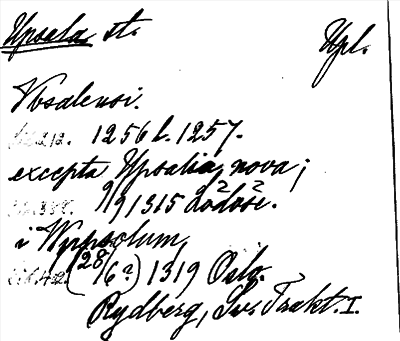 Upsala st. Upl.
Vbsalensi.
1256 l. 1257.
excepta Upsalia nova;
9/9 1315
i Wppsolum,
(28/6?) 1319 Oslo.
Rydberg, Sv. Trakt. I.